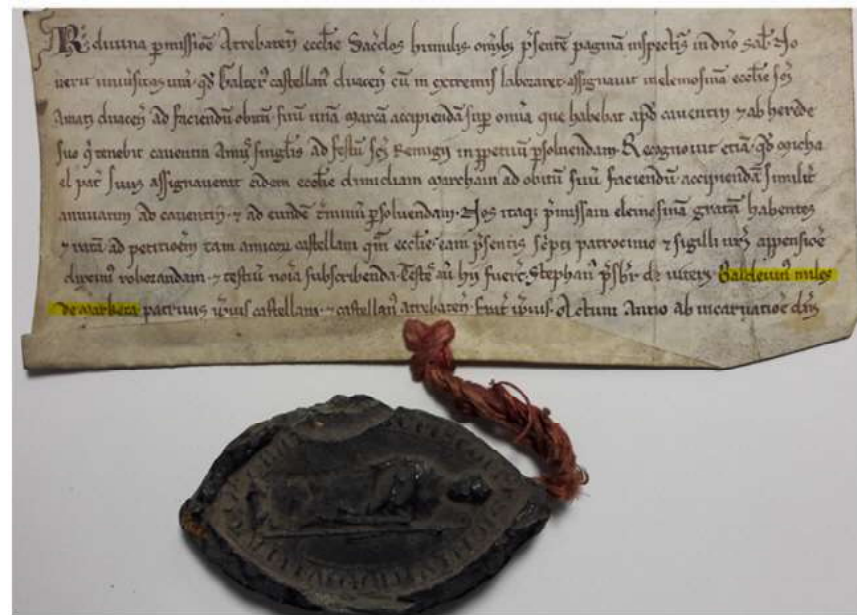 R. divina p̄missiōe Atrebateñ ecclīe Sac̄dos humilis. om̄ib; p̄sentē paginā inspectur̄ in dn̄o sal̄. No
verit univ̄sitas vrā. qd̄ Galter̄ castellan̄ duaceñ cū in extremis laboraret. assignavit in elemosinā ecclīe sc̄i
Amati duaceñ ad faciendū obitū suū unā marcā accipiendā sup̄ om̄ia que habebat apd̄ cauentin ⁊ ab herede
suo q̄ tenebit cauentin Annis singlis ad festū sc̄i Remigii in pp̄etuū p̄solvendam. Recognovit etiā. qd̄ micha
el pat̄ suus assignaverat eidem ecclīe dimidiam marcham ad obitū suū faciendū. accipiendā similit̄
annuatim ad cauentin. ⁊ ad eundē t̄minū p̄solvendam. Nos itaq; p̄missam elemosinā gratā habentes
⁊ ratā ad petitiōem tam castellani qm̄ ecclīe. eam p̄sentis sc̄pti patrocinio ⁊ sigilli nr̄i appensiōe
duximus roborandam. ⁊ testiū noīa subscribenda. Testes aū hii fuer̄t. Stephan̄ p̄sbr̄ de Balduin̄ miles
de marketa patruus ip̄ius castellani. ⁊ castellan̄ atrebateñ. frat̄ ip̄ius. Actum Anno ab incarnatiōe dn̄i